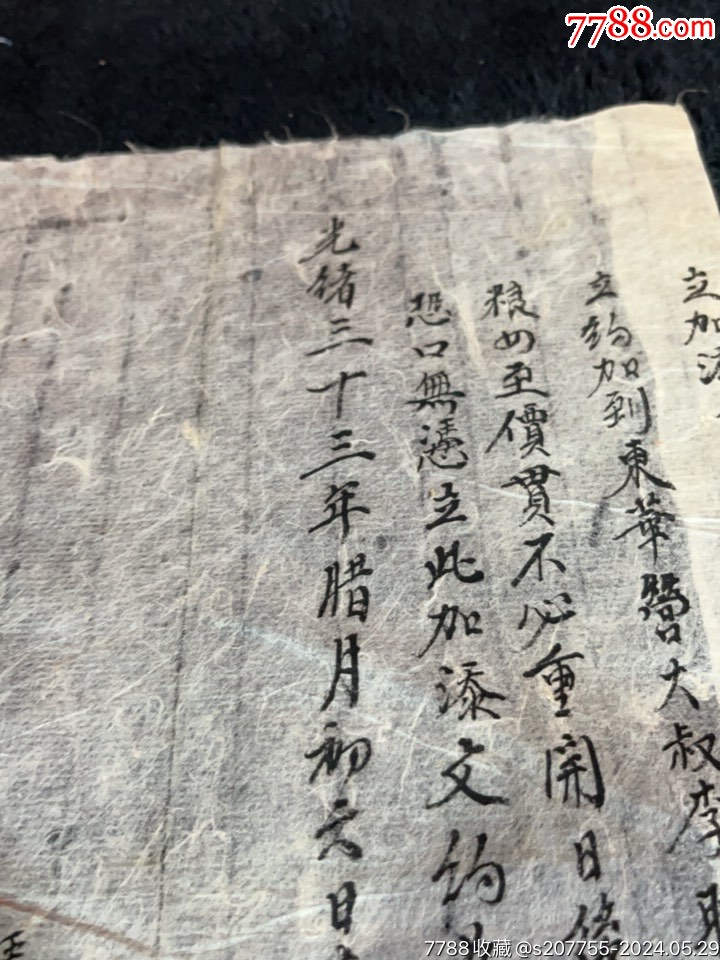 7788.com
立加添
立约加到東華營大叔李
粮㘝至價貫不必重開日後
恐口無憑立此加添文约
光绪三十三年腊月初六日
7788收藏@s207755-2024.05.29